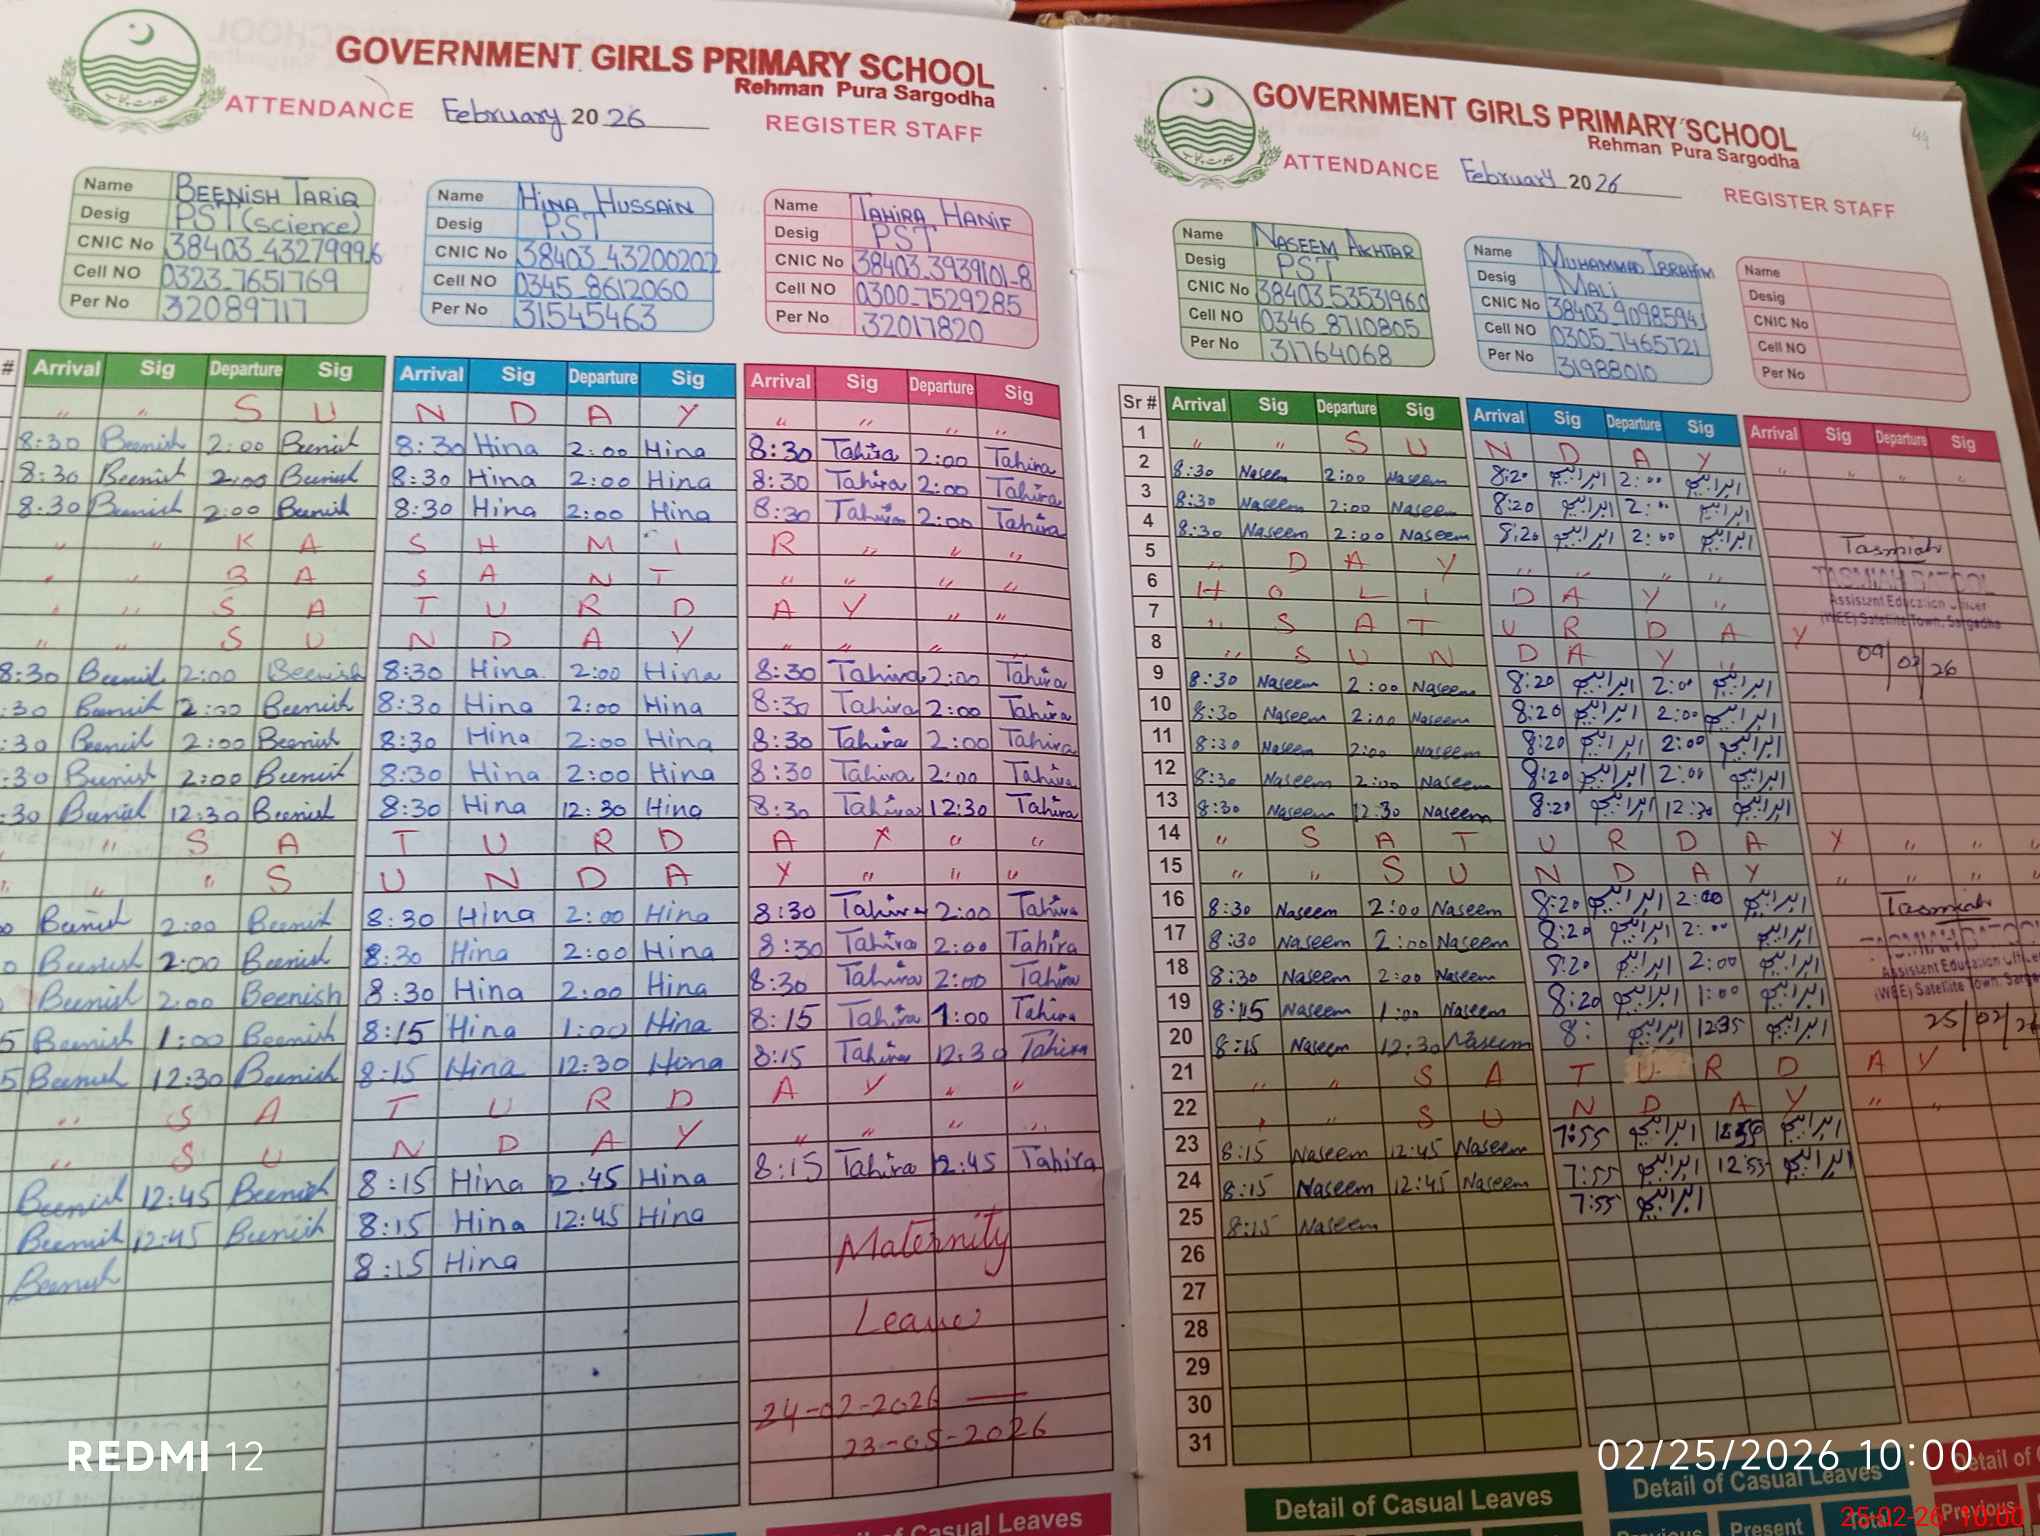 GOVERNMENT GIRLS PRIMARY SCHOOL
Rehman Pura Sargodha
ATTENDANCE February 2026 REGISTER STAFF
Name BEENISH TARIQ
Desig PST (science)
CNIC No 38403-4327999-6
Cell NO 0323-7651769
Per No 32089717
Name HINA HUSSAIN
Desig PST
CNIC No 38403-43200202
Cell NO 0345-8612060
Per No 31545463
Name TAHIRA HANIF
Desig PST
CNIC No 38403-3939101-8
Cell NO 0300-7529285
Per No 32017820
# Arrival Sig Departure Sig Arrival Sig Departure Sig Arrival Sig Departure Sig
" " S U N D A Y " " " "
8:30 Beenish 2:00 Beenish 8:30 Hina 2:00 Hina 8:30 Tahira 2:00 Tahira
8:30 Beenish 2:00 Beenish 8:30 Hina 2:00 Hina 8:30 Tahira 2:00 Tahira
8:30 Beenish 2:00 Beenish 8:30 Hina 2:00 Hina 8:30 Tahira 2:00 Tahira
" " K A S H M I R " " "
" " B A S A N T " " " "
" " S A T U R D A Y " "
" " S U N D A Y " " " "
8:30 Beenish 2:00 Beenish 8:30 Hina 2:00 Hina 8:30 Tahira 2:00 Tahira
:30 Beenish 2:00 Beenish 8:30 Hina 2:00 Hina 8:30 Tahira 2:00 Tahira
:30 Beenish 2:00 Beenish 8:30 Hina 2:00 Hina 8:30 Tahira 2:00 Tahira
:30 Beenish 2:00 Beenish 8:30 Hina 2:00 Hina 8:30 Tahira 2:00 Tahira
:30 Beenish 12:30 Beenish 8:30 Hina 12:30 Hina 8:30 Tahira 12:30 Tahira
" S A T U R D A Y " "
" " " S U N D A Y " " "
0 Beenish 2:00 Beenish 8:30 Hina 2:00 Hina 8:30 Tahira 2:00 Tahira
0 Beenish 2:00 Beenish 8:30 Hina 2:00 Hina 8:30 Tahira 2:00 Tahira
Beenish 2:00 Beenish 8:30 Hina 2:00 Hina 8:30 Tahira 2:00 Tahira
5 Beenish 1:00 Beenish 8:15 Hina 1:00 Hina 8:15 Tahira 1:00 Tahira
5 Beenish 12:30 Beenish 8:15 Hina 12:30 Hina 8:15 Tahira 12:30 Tahira
" S A T U R D A Y " "
" S U N D A Y " " " "
Beenish 12:45 Beenish 8:15 Hina 12:45 Hina 8:15 Tahira 12:45 Tahira
Beenish 12:45 Beenish 8:15 Hina 12:45 Hina
Beenish 8:15 Hina
Maternity
Leave
24-02-2026 —
23-05-2026
Casual Leaves
GOVERNMENT GIRLS PRIMARY SCHOOL
Rehman Pura Sargodha
49
ATTENDANCE February 2026 REGISTER STAFF
Name NASEEM AKHTAR
Desig PST
CNIC No 38403-53531960
Cell NO 0346-8710805
Per No 31764068
Name MUHAMMAD IBRAHIM
Desig MALI
CNIC No 38403-9098594
Cell NO 0305-7465721
Per No 31988010
Name
Desig
CNIC No
Cell NO
Per No
Sr # Arrival Sig Departure Sig Arrival Sig Departure Sig Arrival Sig Departure Sig
1 " " S U N D A Y " " "
2 8:30 Naseem 2:00 Naseem 8:20 ابراہیم 2:00 ابراہیم
3 8:30 Naseem 2:00 Naseem 8:20 ابراہیم 2:00 ابراہیم
4 8:30 Naseem 2:00 Naseem 8:20 ابراہیم 2:00 ابراہیم
5 " D A Y " " " "
6 H O L I D A Y "
7 " S A T U R D A Y
8 " S U N D A Y "
Tasmiah
TASMIAH BATOOL
Assistant Education Officer
(WEE) Satellite Town, Sargodha
09/02/26
9 8:30 Naseem 2:00 Naseem 8:20 ابراہیم 2:00 ابراہیم
10 8:30 Naseem 2:00 Naseem 8:20 ابراہیم 2:00 ابراہیم
11 8:30 Naseem 2:00 Naseem 8:20 ابراہیم 2:00 ابراہیم
12 8:30 Naseem 2:00 Naseem 8:20 ابراہیم 2:00 ابراہیم
13 8:30 Naseem 12:30 Naseem 8:20 ابراہیم 12:30 ابراہیم
14 " S A T U R D A Y " " "
15 " " S U N D A Y " " " "
16 8:30 Naseem 2:00 Naseem 8:20 ابراہیم 2:00 ابراہیم
17 8:30 Naseem 2:00 Naseem 8:20 ابراہیم 2:00 ابراہیم
18 8:30 Naseem 2:00 Naseem 8:20 ابراہیم 2:00 ابراہیم
19 8:15 Naseem 1:00 Naseem 8:20 ابراہیم 1:00 ابراہیم
20 8:15 Naseem 12:30 Naseem 8: ابراہیم 12:35 ابراہیم
Tasmiah
TASMIAH BATOOL
Assistant Education Officer
(WEE) Satellite Town, Sargo
25/02/26
21 " " S A T U R D A Y
22 " " S U N D A Y " "
23 8:15 Naseem 12:45 Naseem 7:55 ابراہیم ابراہیم
24 8:15 Naseem 12:45 Naseem 7:55 ابراہیم 12:55 ابراہیم
25 8:15 Naseem 7:55 ابراہیم
26
27
28
29
30
31
Detail of Casual Leaves Detail of Casual Leaves Detail of
Previous Present Previous
REDMI 12
02/25/2026 10:00
25-02-26 10:00